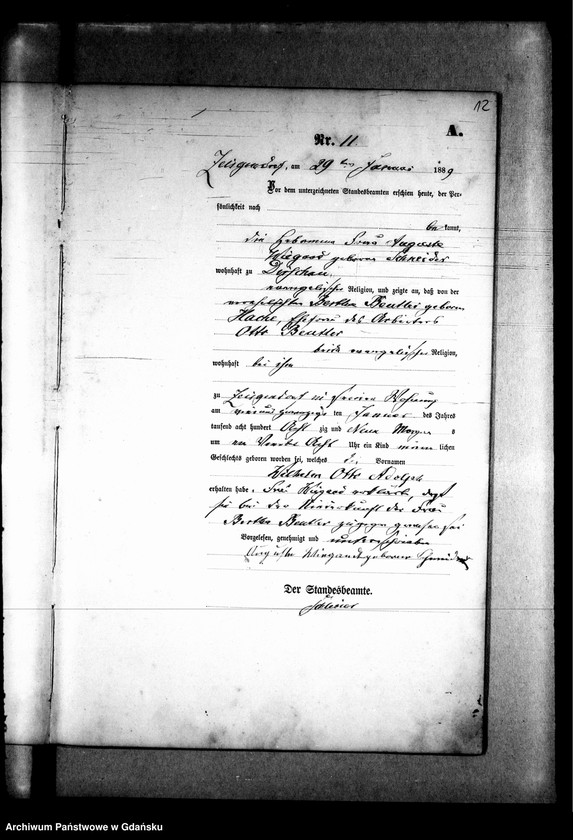 12
A.
Nr. 11
am 29 ten Januar 1889
Vor dem unterzeichneten Standesbeamten erschien heute, der Per-
sönlichkeit nach
be kannt,
die Hebamme Frau Auguste
Wiegand geborene Schneider
wohnhaft zu Dirschau
evangelischer Religion, und zeigte an, daß von der
verehelichten Bertha Beutler geborene
Hacke, Ehefrau des Arbeiters
Otto Beutler
beide evangelischer Religion,
wohnhaft bei ihm
zu in seiner Wohnung
am ten Januar des Jahres
tausend acht hundert Acht zig und Neun Morgen s
um Acht Uhr ein Kind männ lichen
Geschlechts geboren worden sei, welches die Vornamen
Wilhelm Otto Adolph
erhalten habe. Frau Wiegand erklärt, daß
sie bei der Niederkunft der Frau
Bertha Beutler zugegen gewesen sei
Vorgelesen, genehmigt und unterschrieben
Auguste Wiegandt geborene Schneider
Der Standesbeamte.
Archiwum Państwowe w Gdańsku